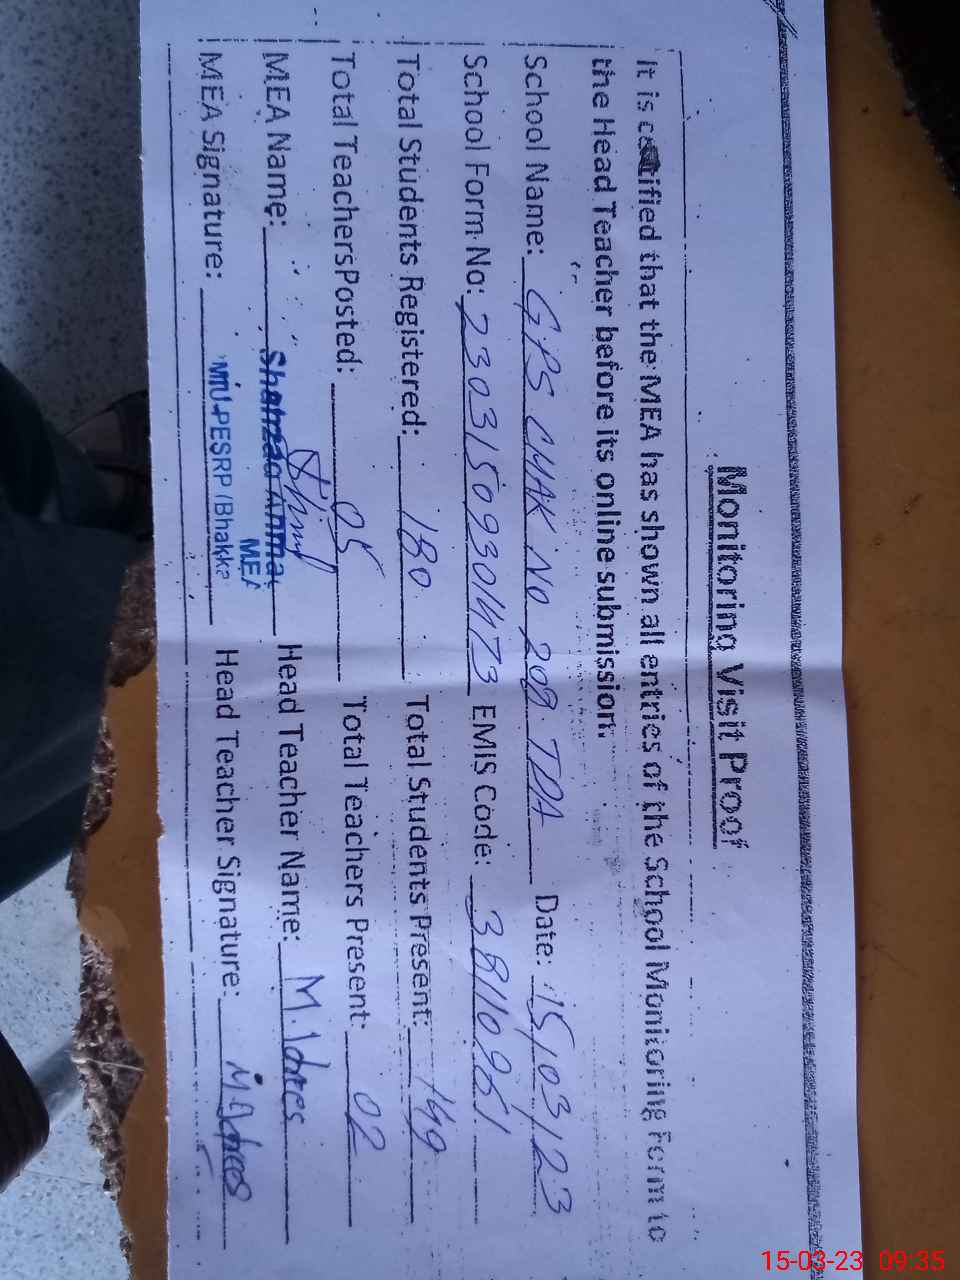 Monitoring Visit Proof
It is certified that the MEA has shown all entries of the School Monitoring Form to
the Head Teacher before its online submission.
School Name: GPS CHAK NO 209 TDA Date: 15/03/23
School Form No: 23031509301473 EMIS Code:
Total Students Registered: 180 Total Students Present: 149
Total TeachersPosted: 05 Total Teachers Present: 02
MEA Name: Head Teacher Name: M. Idrees
MEA
MEA Signature: MIU-PESRP (Bhakka Head Teacher Signature: M. Idrees
15-03-23 09:35